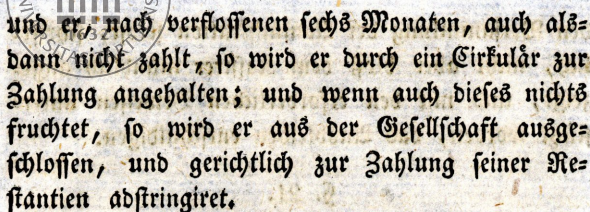 und er, nach verflossenen sechs Monaten, auch als=
dann nicht zahlt, so wird er durch ein Cirkulär zur
Zahlung angehalten; und wenn auch dieses nichts
fruchtet, so wird er aus der Gesellschaft ausge=
schlossen, und gerichtlich zur Zahlung seiner Re=
stantien adstringiret.